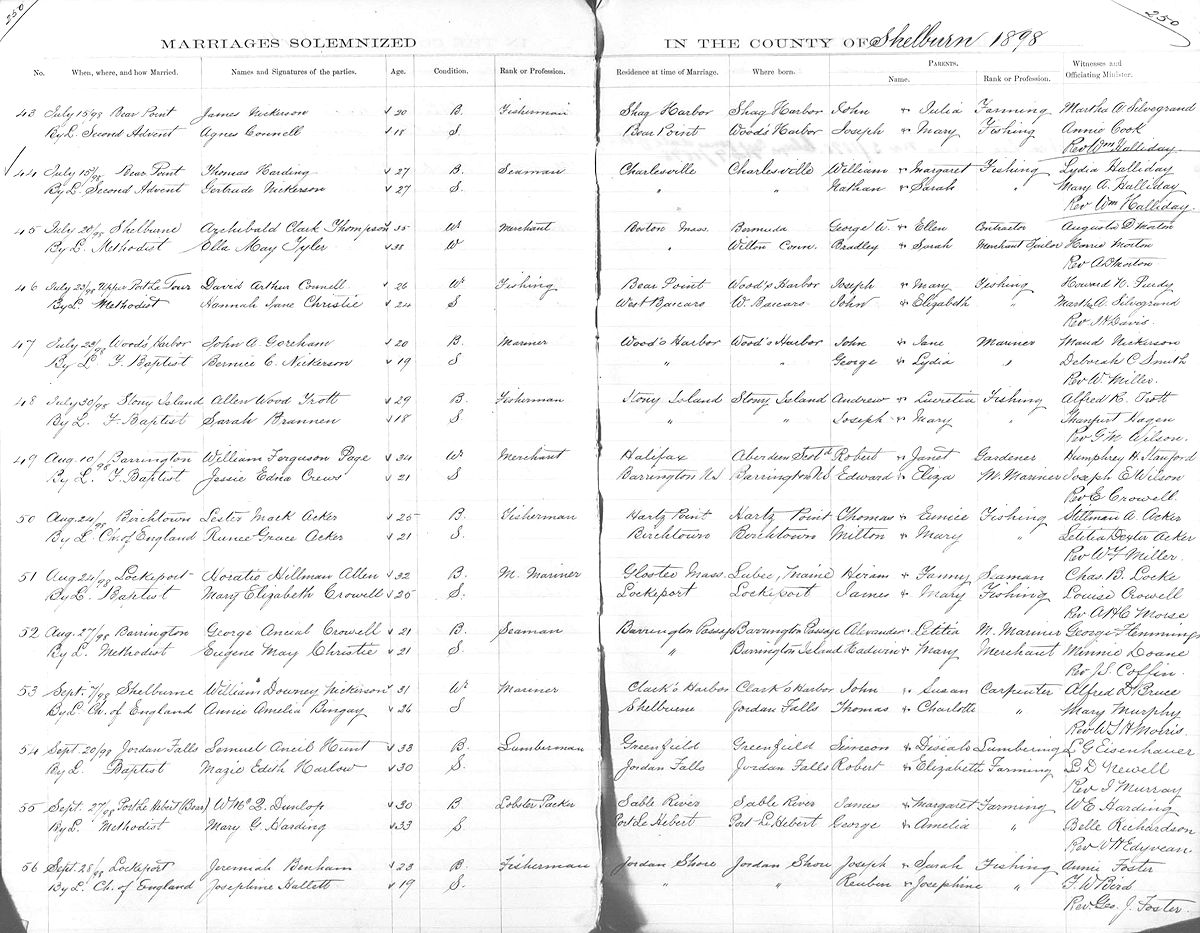 250
250
MARRIAGES SOLEMNIZED IN THE COUNTY OF Shelburn 1898
No. When, where, and how Married. Names and Signatures of the parties. Age. Condition. Rank or Profession. Residence at time of Marriage. Where born. PARENTS. Name. Rank or Profession. Witnesses and Officiating Minister.
43 July 15/98 Bear Point James Nickerson 20 B. Fisherman Shag Harbor Shag Harbor John & Julia Farming Martha A. Silvegrand
By L. Second Advent Agnes Connell 18 S. Bear Point Wood's Harbor Joseph & Mary Fishing Annie Cook
Rev Wm Halliday
44 July 15/98 Bear Point Thomas Harding 27 B. Seaman Charlesville Charlesville William & Margaret Fishing Lydia Halliday
By L. Second Advent Gertrude Nickerson 27 S. " " Nathan & Sarah " Mary A. Halliday
Rev Wm Halliday.
45 July 20/98 Shelburne Archibald Clark Thompson 35 Wr Merchant Boston Mass. Bermuda George W. & Ellen Contractor Augusta D Morton
By L. Methodist Ella May Tyler 38 W " Wilton Conn. Bradley & Sarah Merchant Tailor Harrie Morton
Rev A D Morton
46 July 23/98 Upper Port La Tour David Arthur Connell 26 Wr Fishing Bear Point Wood's Harbor Joseph & Mary Fishing Howard N. Purdy
By L. Methodist Hannah Jane Christie 24 S West Baccaro W. Baccaro John & Elizabeth " Martha A. Silvegrand
Rev J H Davis.
47 July 23/98 Wood's Harbor John A. Goreham 20 B. Mariner Wood's Harbor Wood's Harbor John & Jane Mariner Maud Nickerson
By L. F. Baptist Bernice C. Nickerson 19 S. " " George & Lydia " Deborah C Smith
Rev W. Miller.
48 July 30/98 Stony Island Allen Wood Trott 29 B. Fisherman Stony Island Stony Island Andrew & Lucretia Fishing Alfred R. Trott
By L. F Baptist Sarah Brannen 18 S. " " Joseph & Mary " Hagen
Rev G. M. Wilson.
49 Aug. 10/98 Barrington William Ferguson Page 34 Wr Merchant Halifax Aberdeen Scotd Robert & Janet Gardener Humphrey H. Stanford
By L. F. Baptist Jessie Edna Crews 21 S Barrington NS Barrington N.S Edward & Eliza M. Mariner Joseph E Wilson
Rev E Crowell
50 Aug. 24/98 Birchtown Lester Mack Acker 25 B. Fisherman Hartz Point Hartz Point Thomas & Eunice Fishing Stillman A. Acker
By L. Ch. of England Grace Acker 21 S. Birchtown Birchtown Milton & Mary " Letitia Dexter Acker
Rev W. Miller.
51 Aug 24/98 Lockeport Horatio Hillman Allen 32 B. M. Mariner Gloster Mass. Lubec, Maine Hiram & Fanny Seaman Chas. B. Locke
By L. Baptist Mary Elizabeth Crowell 25 S. Lockeport Lockeport James & Mary Fishing Louise Crowell
Rev A H C Morse
52 Aug. 27/98 Barrington George Ancial Crowell 21 B. Seaman Barrington Passage Barrington Passage Alexander & Letitia M. Mariner George Flemming
By L. Methodist Eugene May Christie 21 S " Barrington Island Eadwin & Mary Merchant Minnie Doane
Rev J S. Coffin.
53 Sept. 7/98 Shelburne William Downey Nickerson 31 Wr Mariner Clark's Harbor Clark's Harbor John & Susan Carpenter Alfred D Bruce
By L. Ch. of England Annie Amelia Bingay 26 S Shelburne Jordan Falls Thomas & Charlotte " Mary Murphy
Rev W S H Morris
54 Sept. 20/98 Jordan Falls Lemuel Aneil Hunt 33 B. Lumberman Greenfield Greenfield Simeon & Lumbering L G Eisenhauer
By L. Baptist Mazie Edith Harlow 30 S. Jordan Falls Jordan Falls Robert & Elizabeth Farming L D Newell
Rev I Murray
55 Sept. 27/98 Port Le Hebert (Bear) Wm. Dunlop 30 B Lobster Packer Sable River Sable River James & Margaret Farming W E Harding
By L. Methodist Mary G. Harding 33 S Port Le Hebert Port L. Hebert George & Amelia " Belle Richardson
Rev W H Edyvean.
56 Sept. 28/98 Lockeport Jeremiah Benham 23 B. Fisherman Jordan Shore Jordan Shore Joseph & Sarah Fishing Annie Foster
By L. Ch. of England Josephine Hallett 19 S. " " Reuben & Josephine " F. W Bird
Rev. Geo. J. Foster.